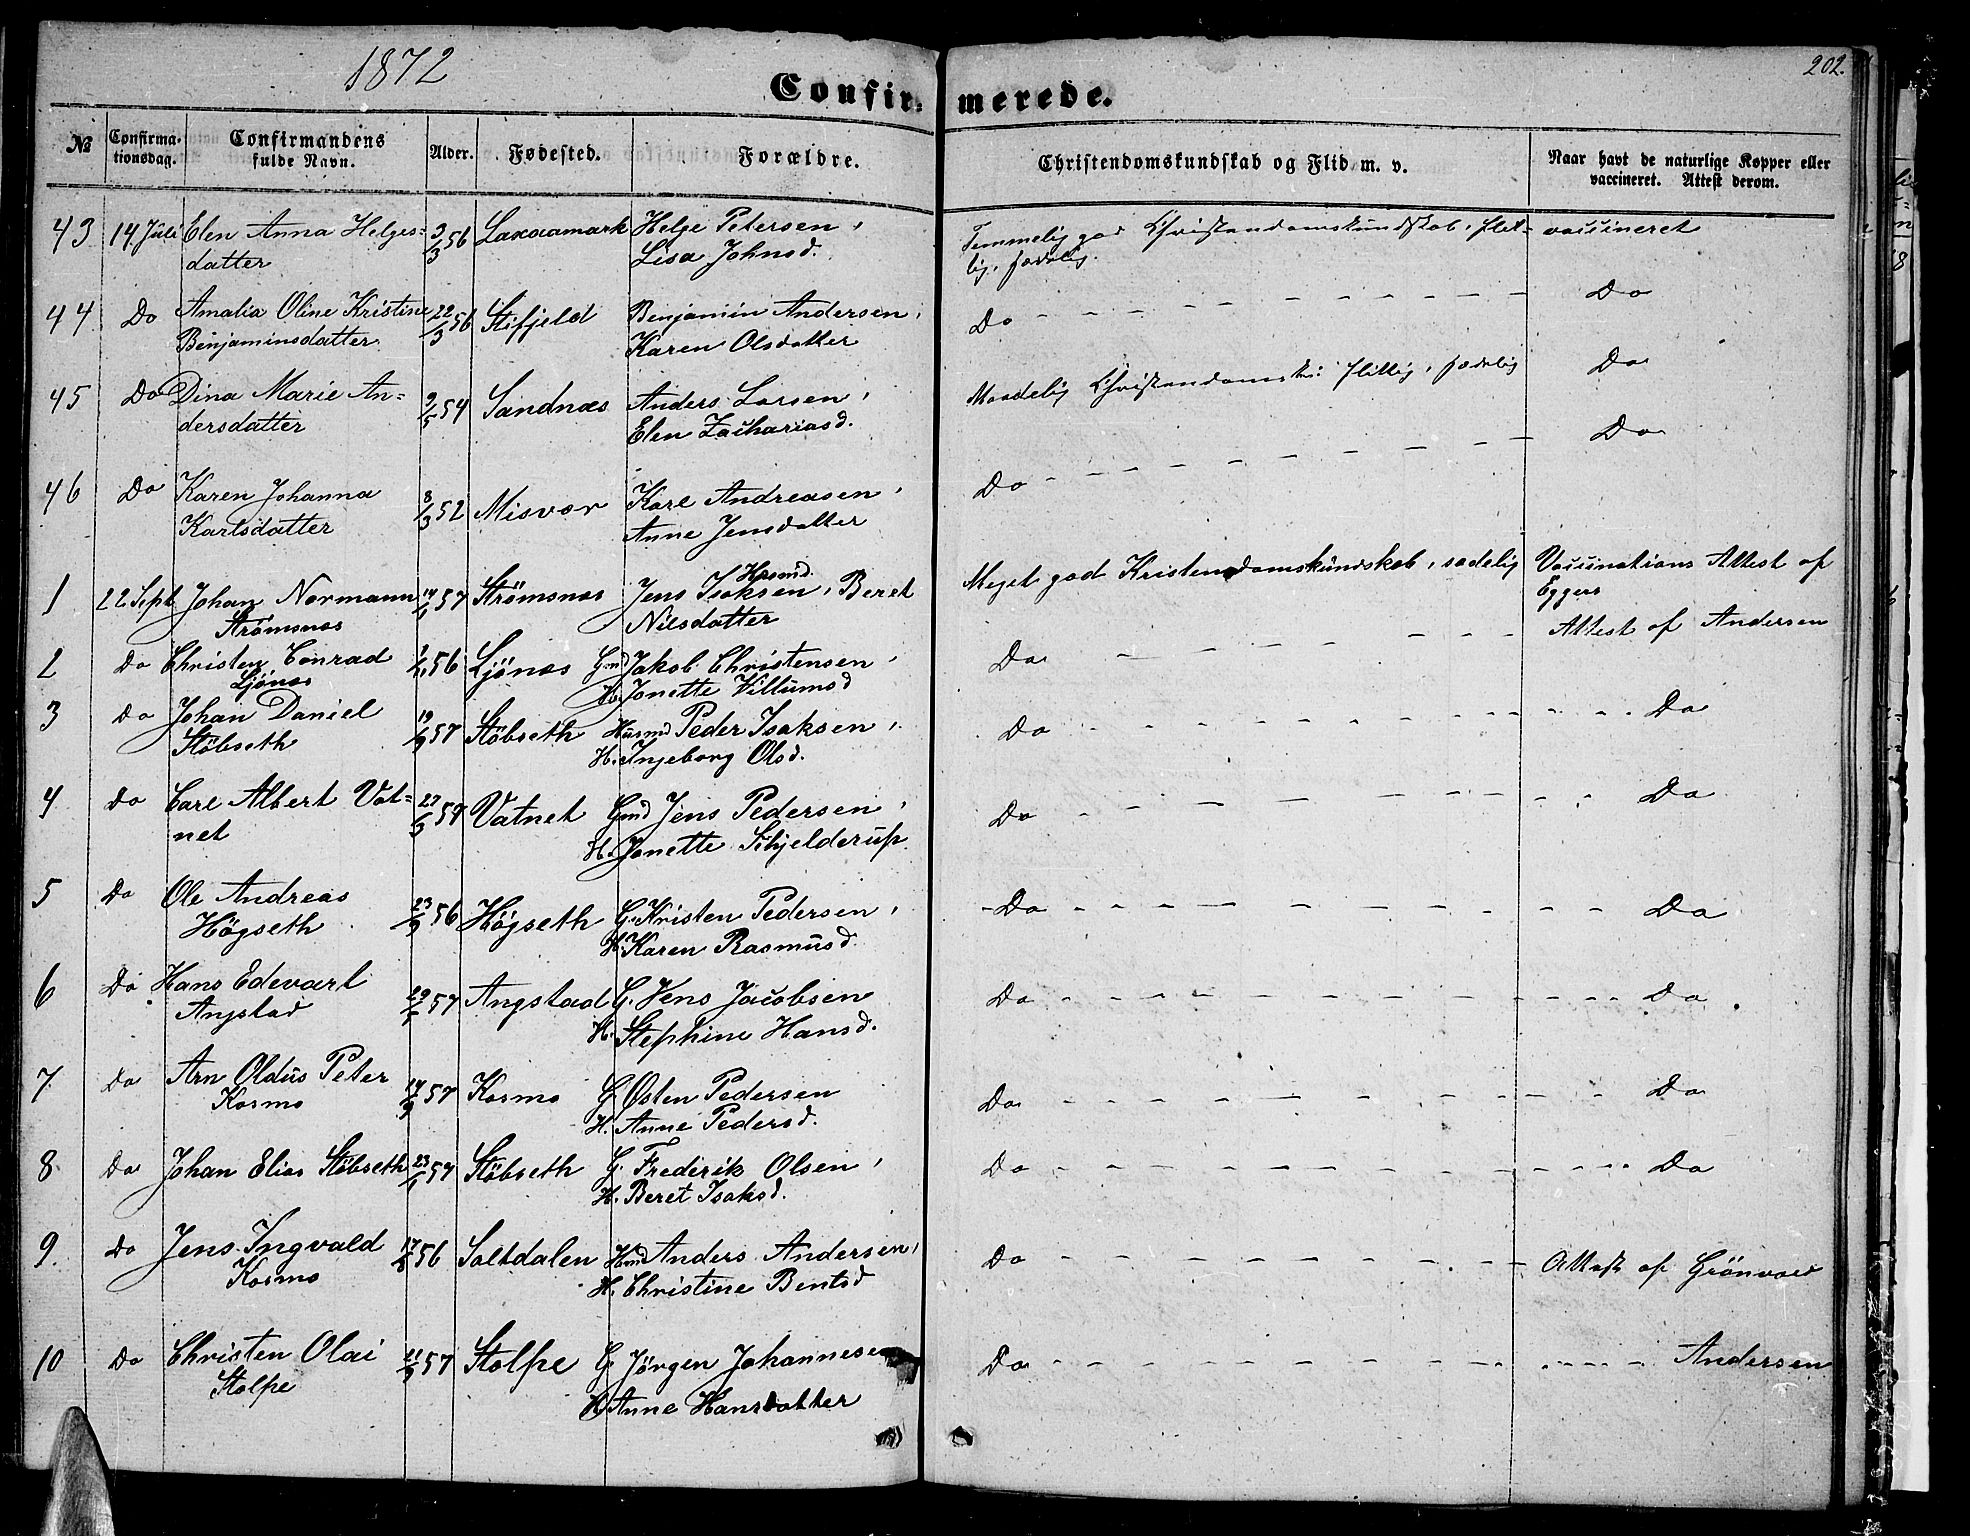 1872
202.
Confirmerede.
№ Confirmationsdag. Confirmandens fulde Navn. Alder. Fødested. Forældre. Christendomskundskab og Flid m. v. Naar havt de naturlige Kopper eller vaccineret. Attest derom.
43 14 Juli Elen Anna Helges= 3/3 56 Laxaamark Helge Petersen, Temmelig god Christendomskundskab, flit= vaccineret
datter Lisa Johnsd. lig, sædelig.
44 Do Amalia Oline Kristine 22/3 56 Stifjeld Benjamin Andersen, Do - - - - - - - - - Do
Benjaminsdatter Karen Olsdatter
45 Do Dina Marie An= 9/5 54 Sandnæs Anders Larsen, Maadelig Christendomsk: flittig, sædelig Do
dersdatter Elen Zachariasd.
46 Do Karen Johanna 8/3 52 Misvær Karl Andreasen, Do - - - - - - - - - Do
Karlsdatter Anne Jensdatter
1 22 Sept Johan Normann 14/1 57 Strömsnæs Jens Isaksen, Husmd. Beret Meget god Kristendomskundskab, sædelig Vaccinations Attest af
Strömsnæs Nilsdatter Eggers
2 Do Christen Conrad 56 Ljönæs Gmd Jakob Christensen, Do - - - - - - Attest af Andersen
Ljönæs H. Jonette Villumsd
3 Do Johan Daniel 19/9 57 Stöbseth Husmd Peder Isaksen, Do - - - - - - Do
Stöbseth H. Ingeborg Olsd.
4 Do Carl Albert Vat= 27/3 57 Vatnet Gmd Jens Pedersen, Do - - - - - - Do
net H. Jonette Schjelderup
5 Do Ole Andreas 23/9 56 Högseth G. Kristen Pedersen, - Do - - - - - - Do
Högseth H. Karen Rasmusd.
6 Do Hans Edevart 29/1 57 Angstad G. Jens Jacobsen Do - - - - - - Do.
Angstad H. Stephine Hansd.
7 Do Arn Oldus Peter 14/9 57 Kosmo G Östen Pedersen Do - - - - - - Do
Kosmo H. Anne Pedersd.
8 Do Johan Elias Stöbseth 23/1 57 Stöbseth G. Frederik Olsen, Do - - - - - - Do
H. Beret Isaksd.
9. Do Jens Ingvald 17/8 56 Saltdalen Hmd Anders Andersen, Do - - - - - - Attest af Grönvold
Kosmo H. Christine Bentsd
10 Do Christen Olai 11/9 57 Stolpe G. Jörgen Johannesen Do - - - - - - Andersen
Stolpe H Anne Hansdatter